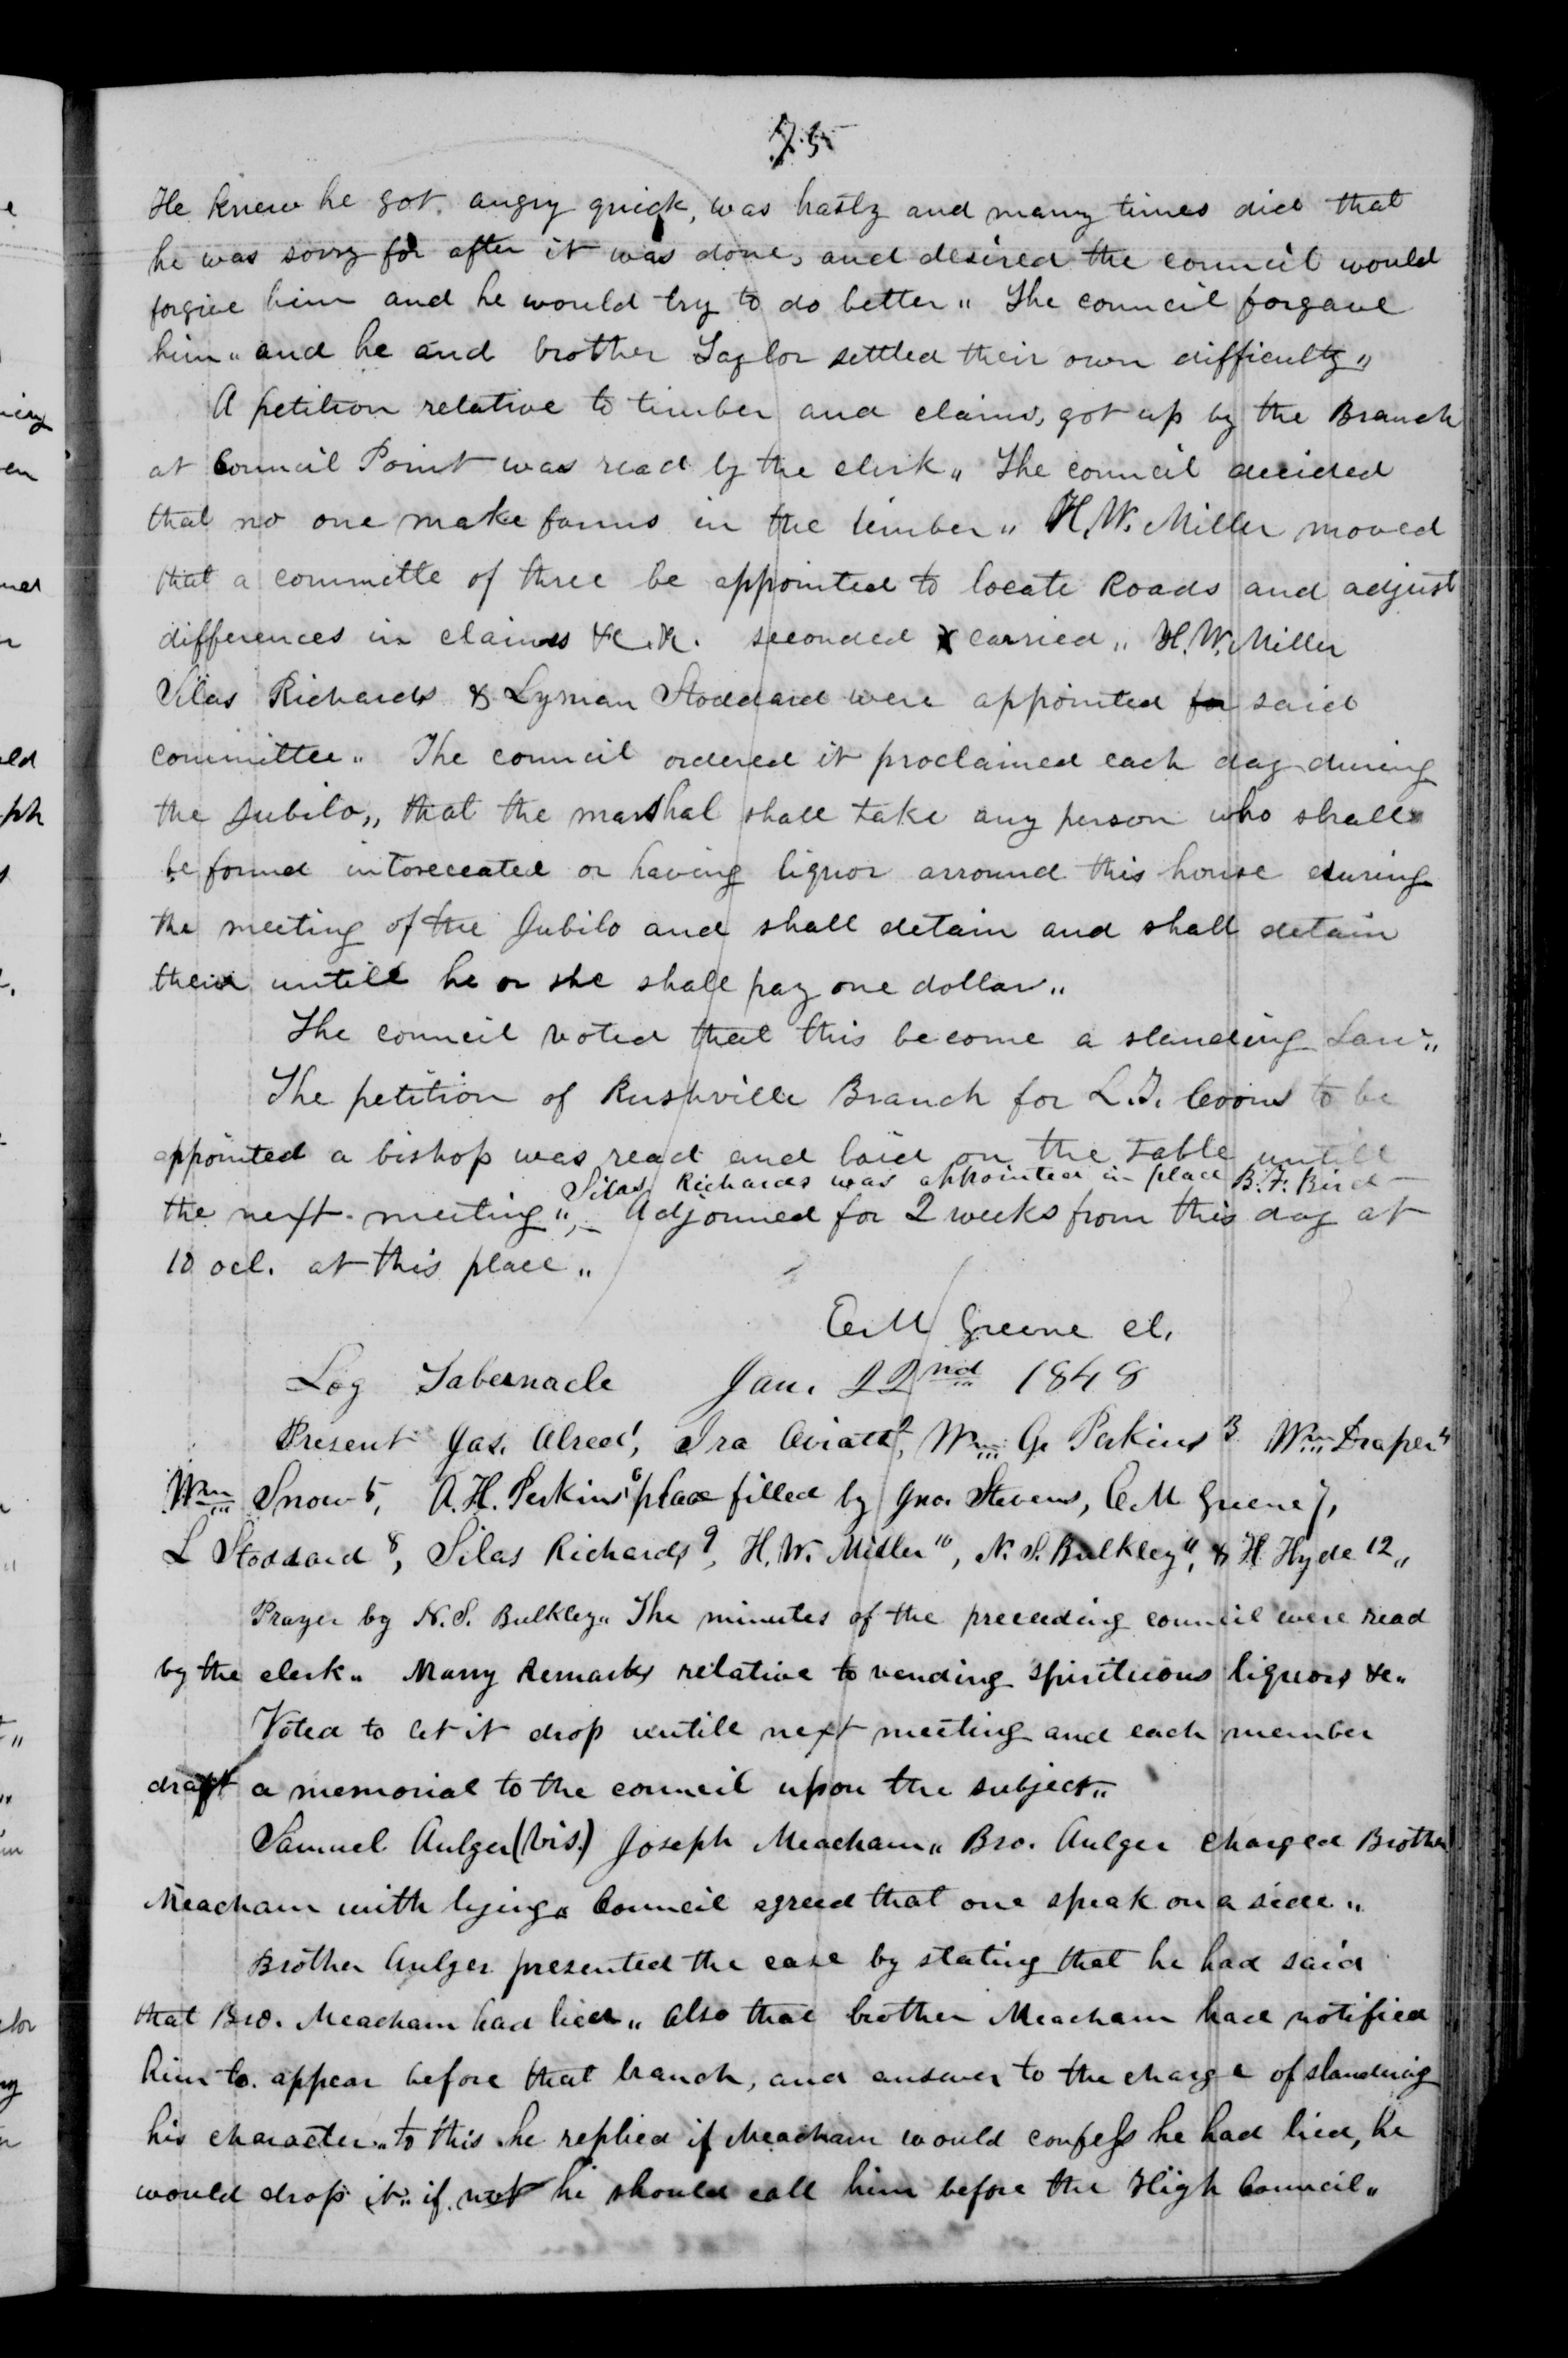 75
He knew he got angry quick, was hasty and many times did that
he was sorry for after it was done, and desired the council would
forgive him and he would try to do better" The council forgave
him" and he and brother Taylor settled their own difficulty"
A petition relative to timber and claims, got up by the Branch
at Council Point was read by the clerk" The council decided
that no one make farms in the timber" H. W. Miller moved
that a committe of three be appointed to locate Roads and adjust
differences in claims &c. &c. seconded & carried" H. W. Miller
Silas Richards & Lyman Stoddard were appointed for said
committee" The council ordered it proclaimed each day during
the Jubilo," that the marshal shall take any person who shall
be found intoxecated or having liquor arround this house during
the meeting of the Jubilo and shall detain and shall detain
them untill he or she shall pay one dollar"
The council voted that this become a standing Law"
The petition of Rushville Branch for L. T. Coons to be
appointed a bishop was read and laid on the table untill
Silas Richards was appointed in place B. F. Bird –
the next meeting" – Adjourned for 2 weeks from this day at
10 ocl. at this place"
E. M Greene cl.
Log Tabernacle Jan. 22nd 1848
Present Jas. Alred 1, Ira Oviatt 2, Wm G. Perkins 3 Wm Draper 4
Wm Snow 5, A. H. Perkins 6 place filled by Jno. Stevens, E. M Greene 7,
L Stoddard 8, Silas Richards 9, H. W. Miller 10, N. S. Bulkley 11, & H Hyde 12"
Prayer by N. S. Bulkley" The minutes of the preceeding council were read
by the clerk" Many Remarks relative to vending spirituous liquors &c"
Voted to let it drop untill next meeting and each member
draft a memorial to the council upon the subject"
Samuel Aulger (vis.) Joseph Meacham" Bro. Aulger charged Brother
Meacham with lying" Council agreed that one speak on a side"
Brother Aulger presented the case by stating that he had said
that Bro. Meacham had lied" also that brother Meacham had notified
him to appear before that branch, and answer to the charge of slandering
his character" to this he replied if Meacham would confess he had lied, he
would drop it" if not he should call him before the High Council"